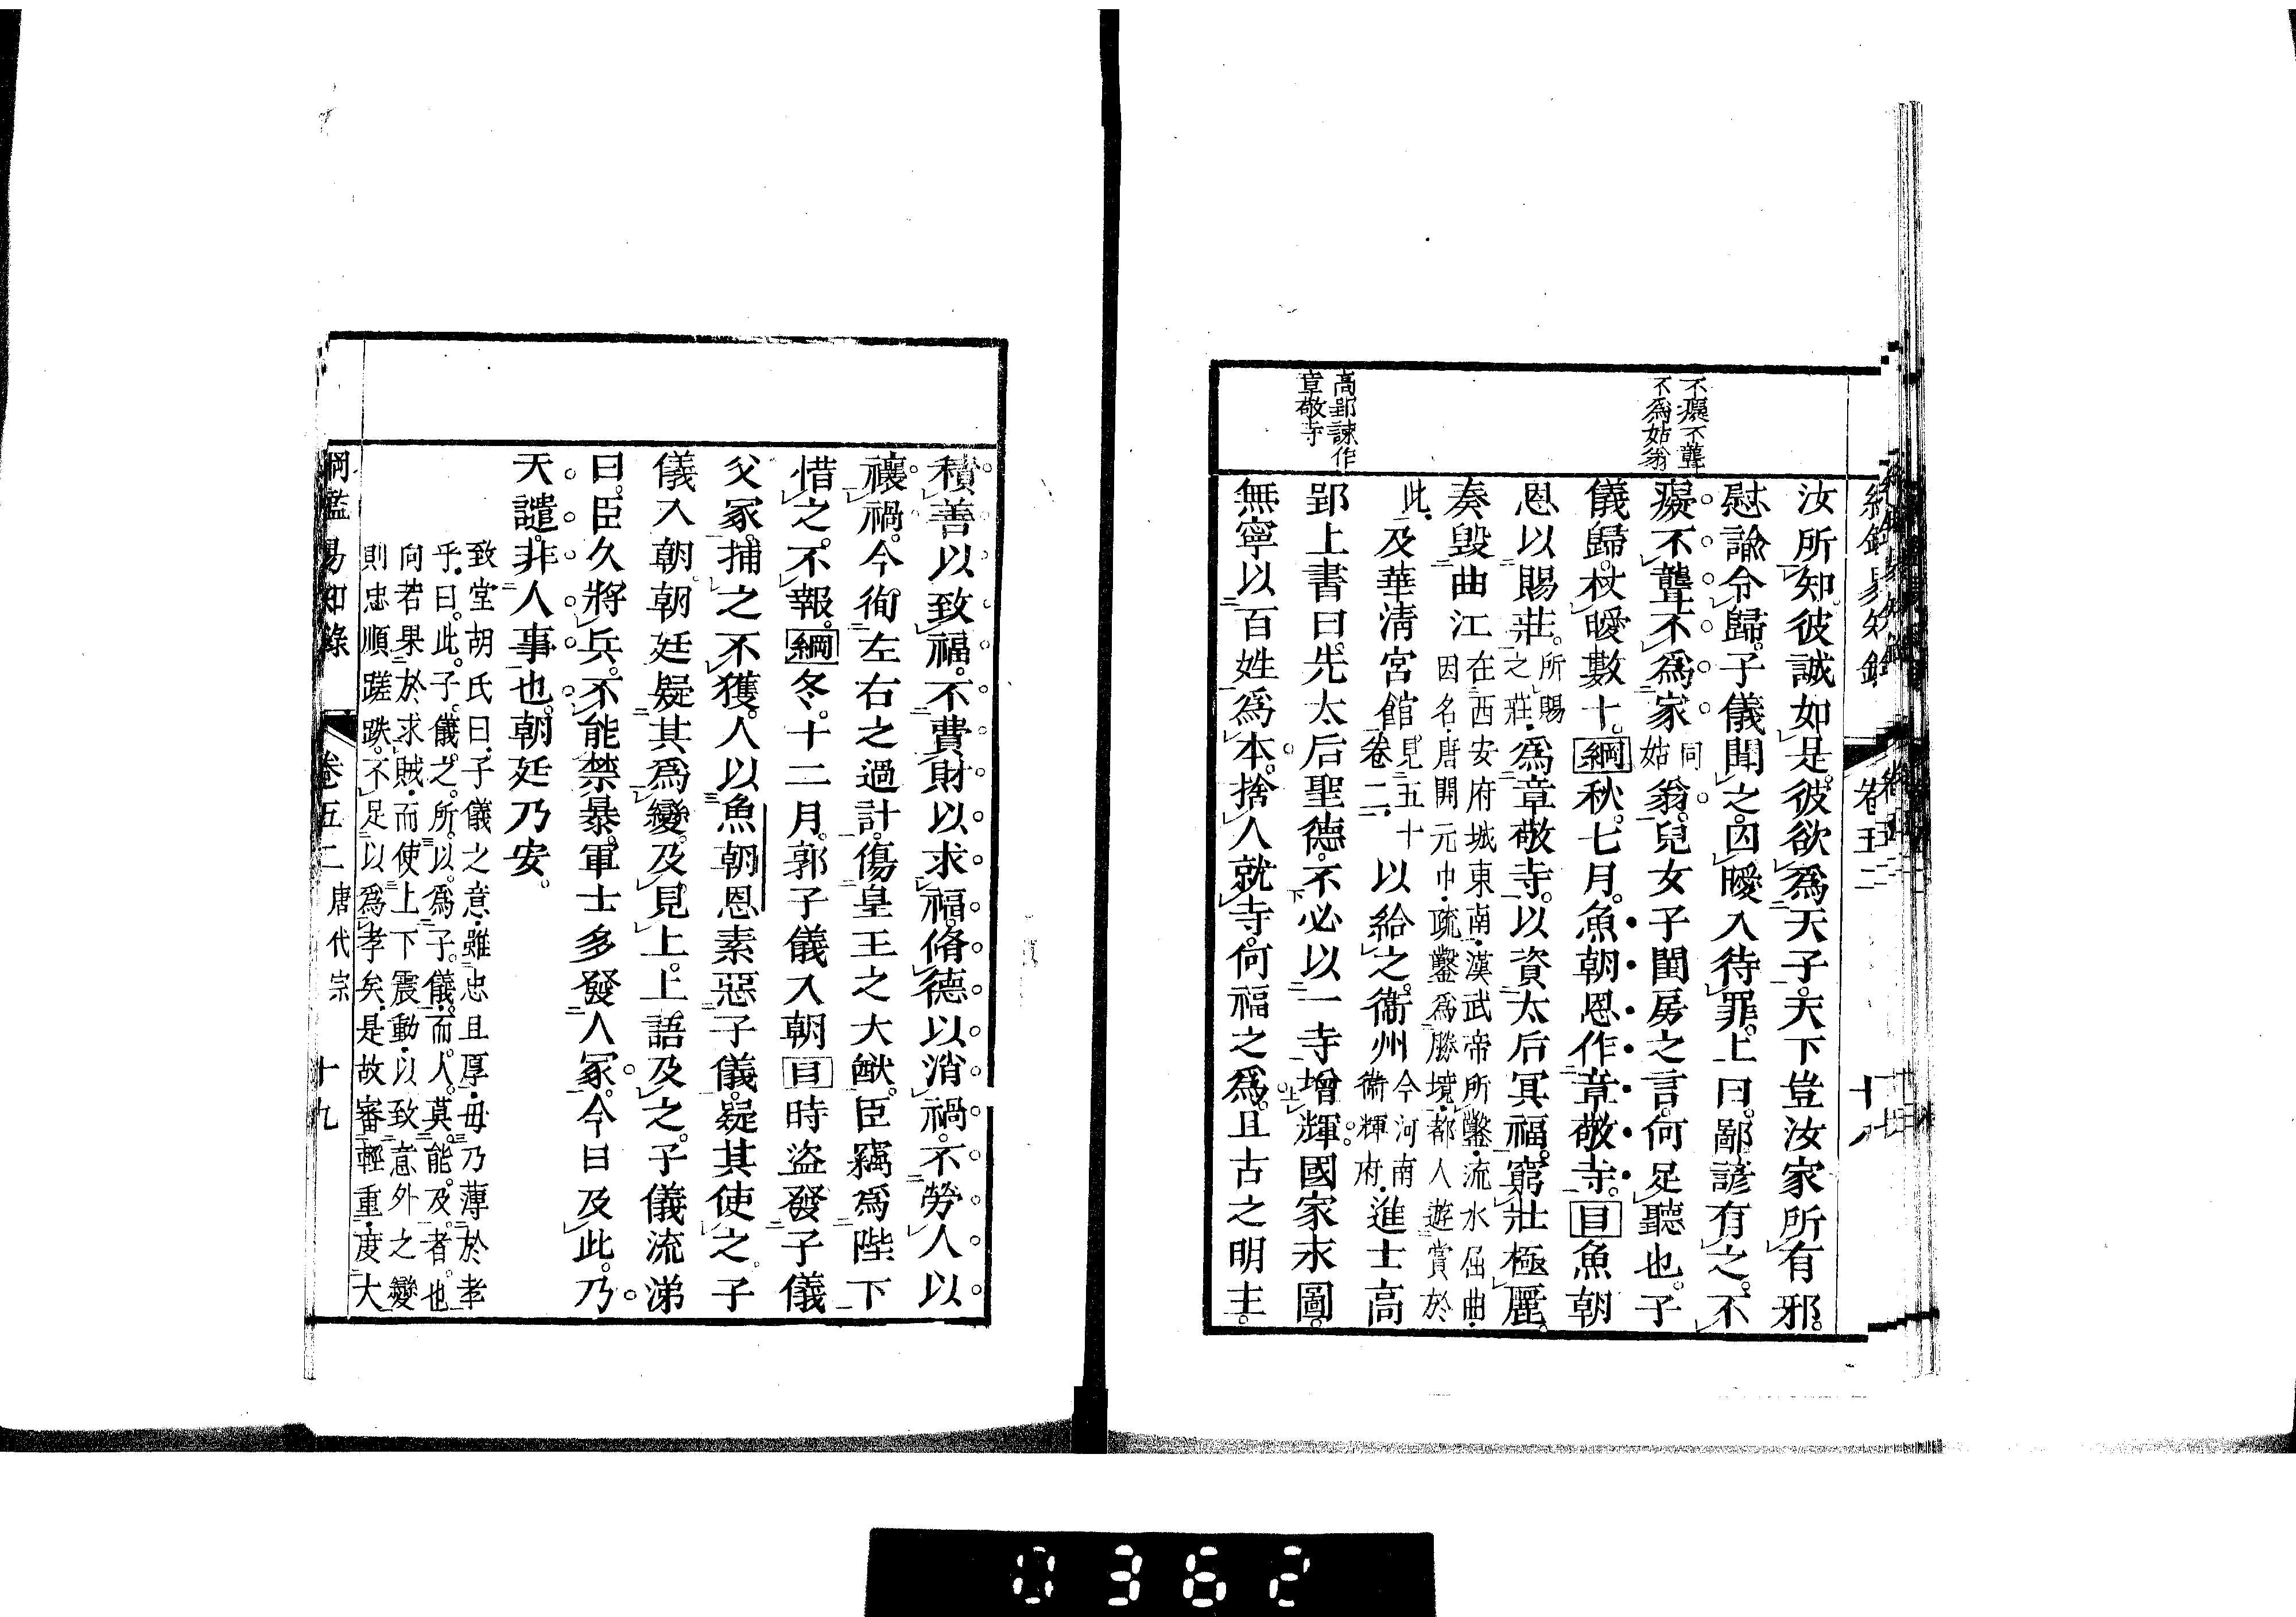 不癡不聾
不為姑翁
高郢諫作
章敬寺
汝所知彼誠如是彼欲爲天子天下豈汝家所有邪
慰諭令歸子儀聞之囚曖入待罪上曰鄙諺有之不
癡不聾不爲家同姑翁兒女子閨房之言何足聽也子
儀歸杖曖數十綱秋七月魚朝恩作章敬寺目魚朝
恩以賜莊所賜之莊爲章敬寺以資太后冥福窮壯極麗
奏毀曲江在西安府城東南漢武帝所鑿流水屈曲因名唐開元中疏鑿爲勝境都人遊賞於
此及華淸宮館見五十卷二以給之衞州今河南衞輝府進士高
郢上書曰先太后聖德不必以一寺增輝國家永圖
無寧以百姓爲本捨人就寺何福之爲且古之明主
積善以致福不費財以求福脩德以消禍不勞人以
禳禍今徇左右之過計傷皇王之大猷臣竊爲陛下
惜之不報綱冬十二月郭子儀入朝目時盜發子儀
父冢捕之不獲人以魚朝恩素惡子儀疑其使之子
儀入朝朝廷疑其爲變及見上上語及之子儀流涕
曰臣久將兵不能禁暴軍士多發人冢今日及此乃
天譴非人事也朝廷乃安
致堂胡氏曰子儀之意雖忠且厚毋乃薄於孝
乎曰此子儀之所以爲子儀而人莫能及者也
向若果於求賊而使上下震動以致意外之變
則忠順蹉跌不足以爲孝矣是故審輕重度大
綱鑑易知錄 卷五二 唐代宗 十九